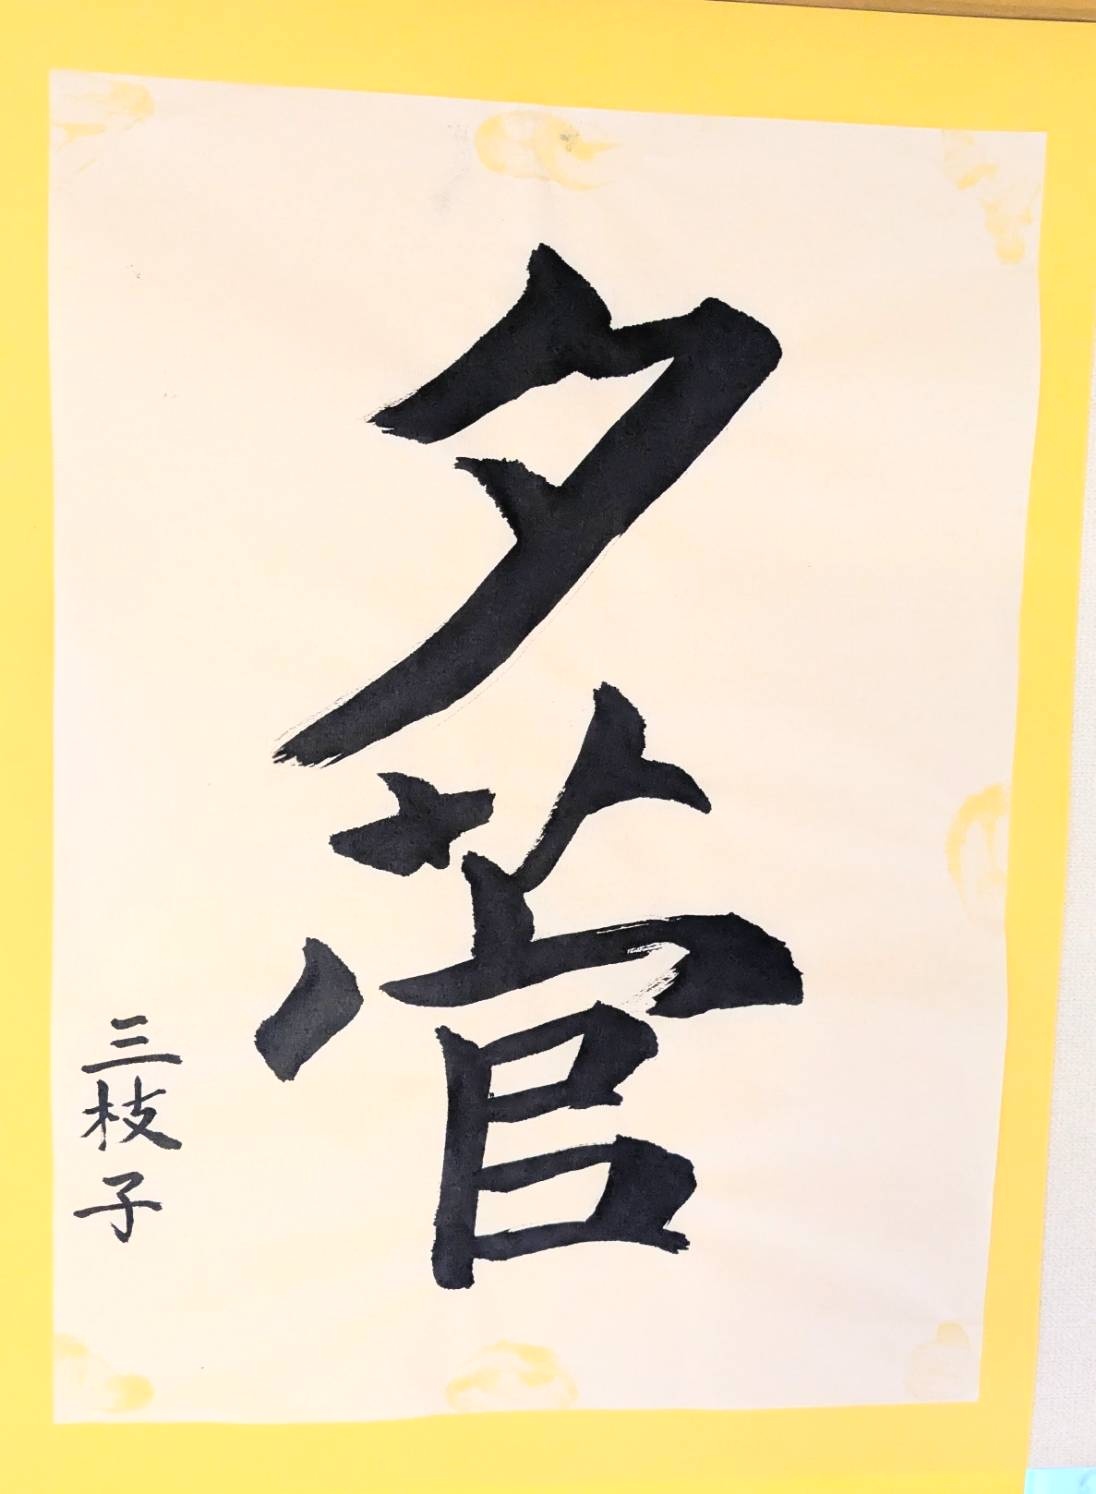 夕菅
三枝子